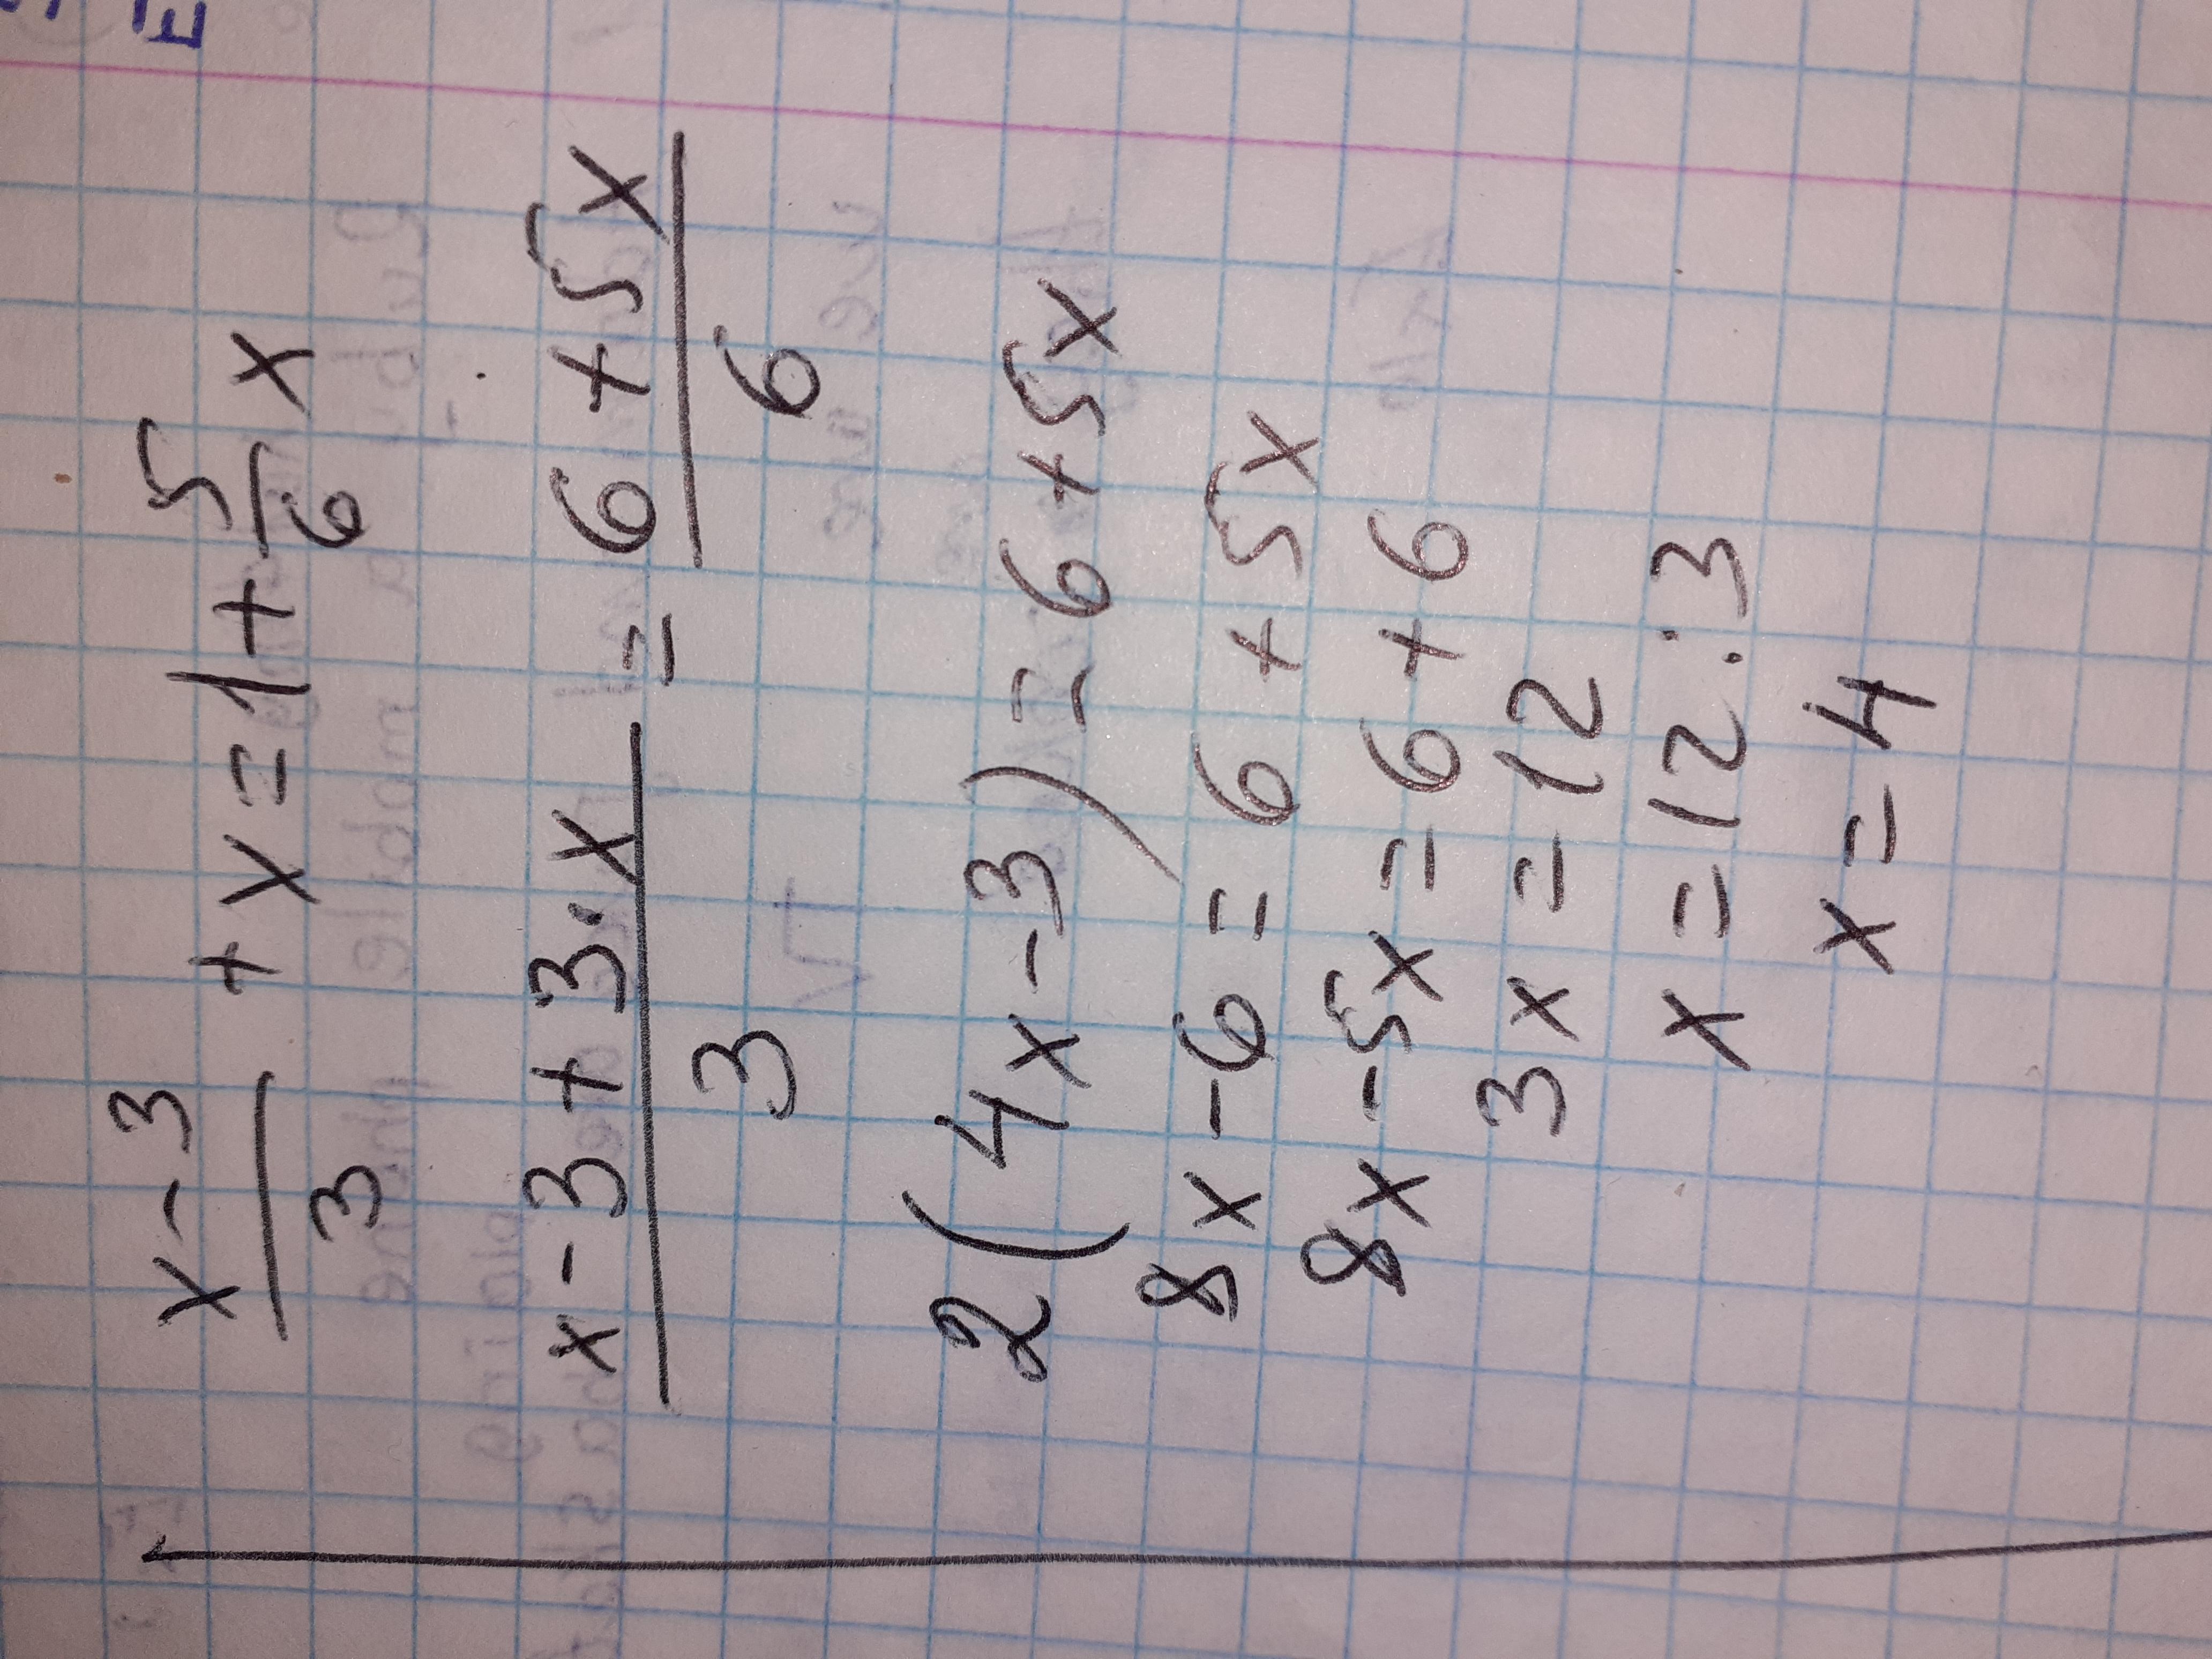 E
x-3/3 + x = 1 + 5/6 x
x-3+3·x/3 = 6+5x/6
2(4x-3) = 6+5x
8x-6 = 6+5x
8x-5x = 6+6
3x = 12
x = 12:3
x = 4